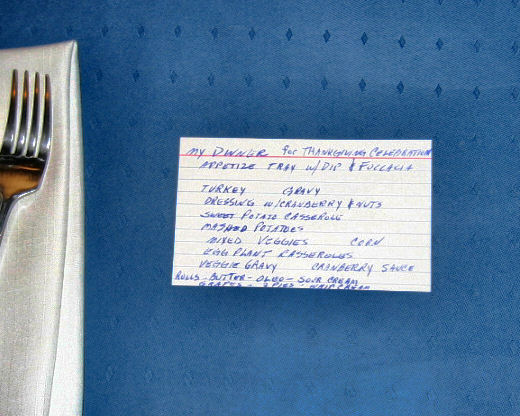 MY DINNER for THANKSGIVING CELEBRATION
APPETIZE TRAY W/DIP & FOCCACIA
TURKEY GRAVY
DRESSING W/CRANBERRY & NUTS
SWEET POTATO CASSEROLE
MASHED POTATOES
MIXED VEGGIES CORN
EGG PLANT KASSEROLES
VEGGIE GRAVY CRANBERRY SAUCE
ROLLS - BUTTER - OLEO - SOUR CREAM
GRAPES - PIES - WHIP CREAM